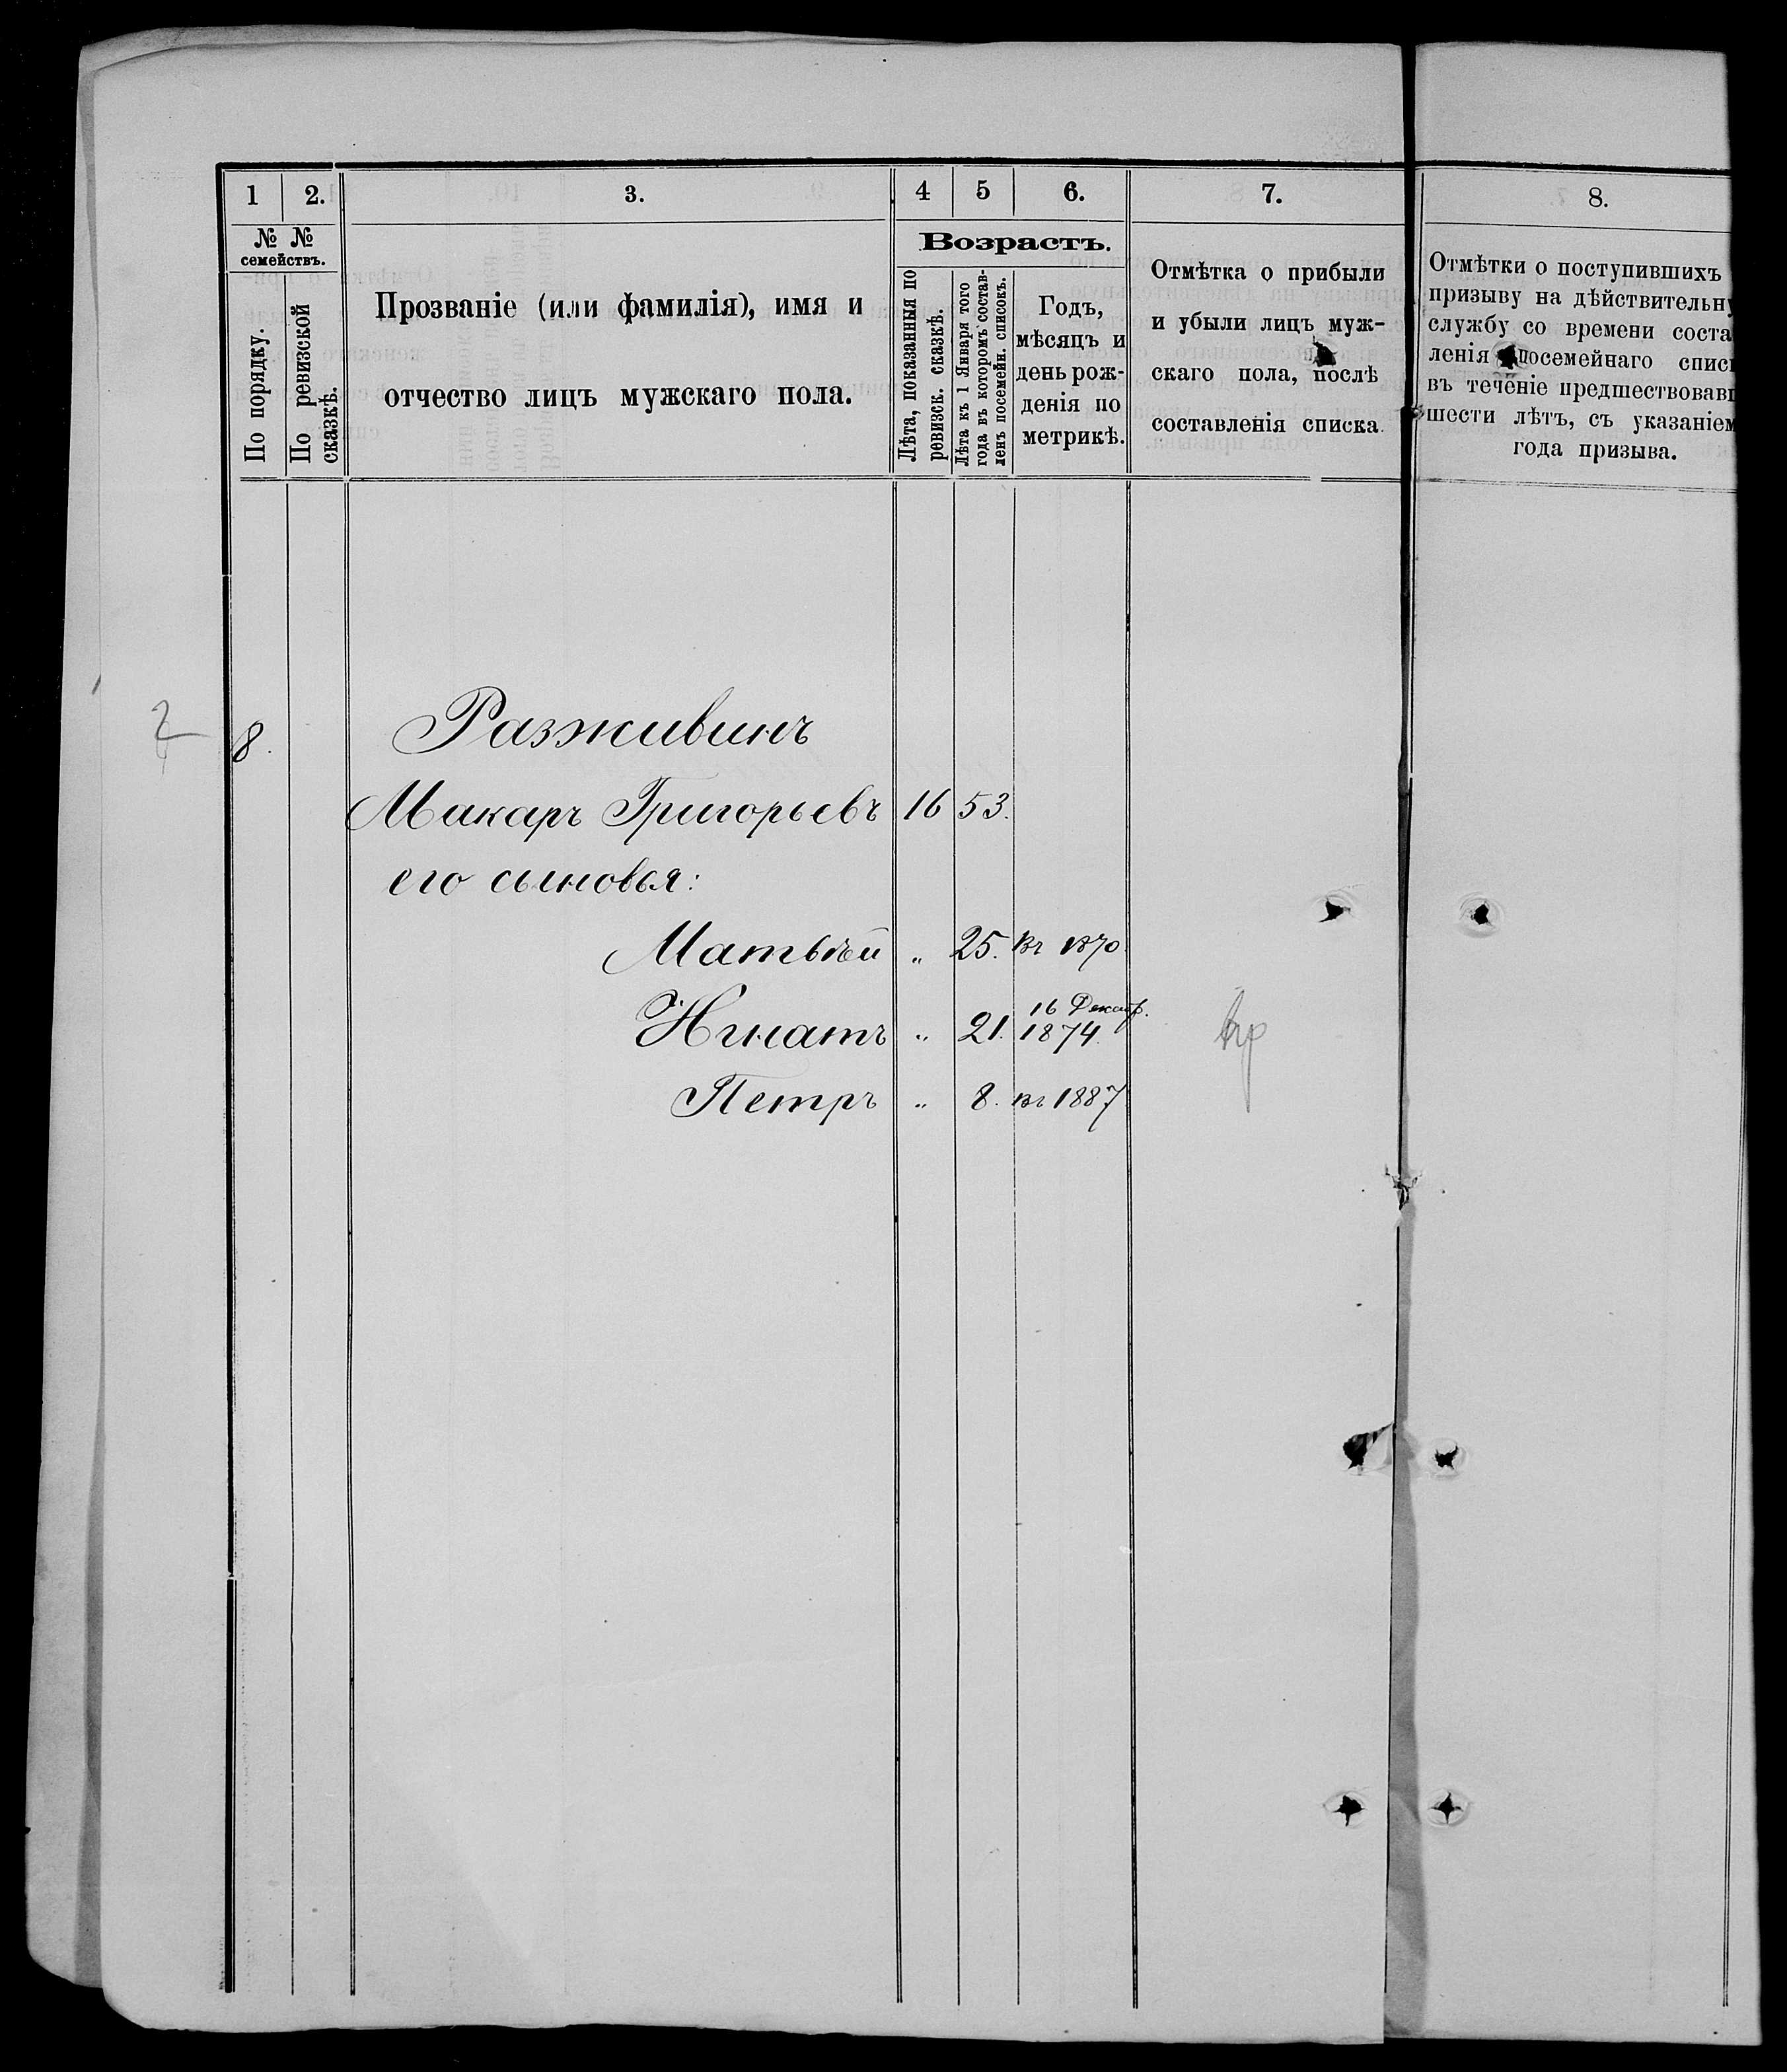 1 2. 3. 4 5 6. 7. 8.
№ № семействъ.
По порядку.
По ревизской сказкѣ.
Прозваніе (или фамилія), имя и
отчество лицъ мужскаго пола.
Возрастъ.
Лѣта, показанныя по
ревизск. сказкѣ.
Лѣта къ 1 Января того
года въ которомъ состав-
ленъ посемейн. списокъ.
Годъ,
мѣсяцъ и
день рож-
денія по
метрикѣ.
Отмѣтка о прибыли
и убыли лицъ муж-
скаго пола, послѣ
составленія списка.
Отмѣтки о поступившихъ
призыву на дѣйствительну
службу со времени соста
ленія посемейнаго списк
въ теченіе предшествовавш
шести лѣтъ, съ указаніем
года призыва.
8. Разживинъ
Макаръ Григорьевъ 16 53.
его сыновья:
Матвѣй „ 25. въ 1870
16 Декабр.
Игнатъ „ 21. 1874.
Петръ „ 8. въ 1887